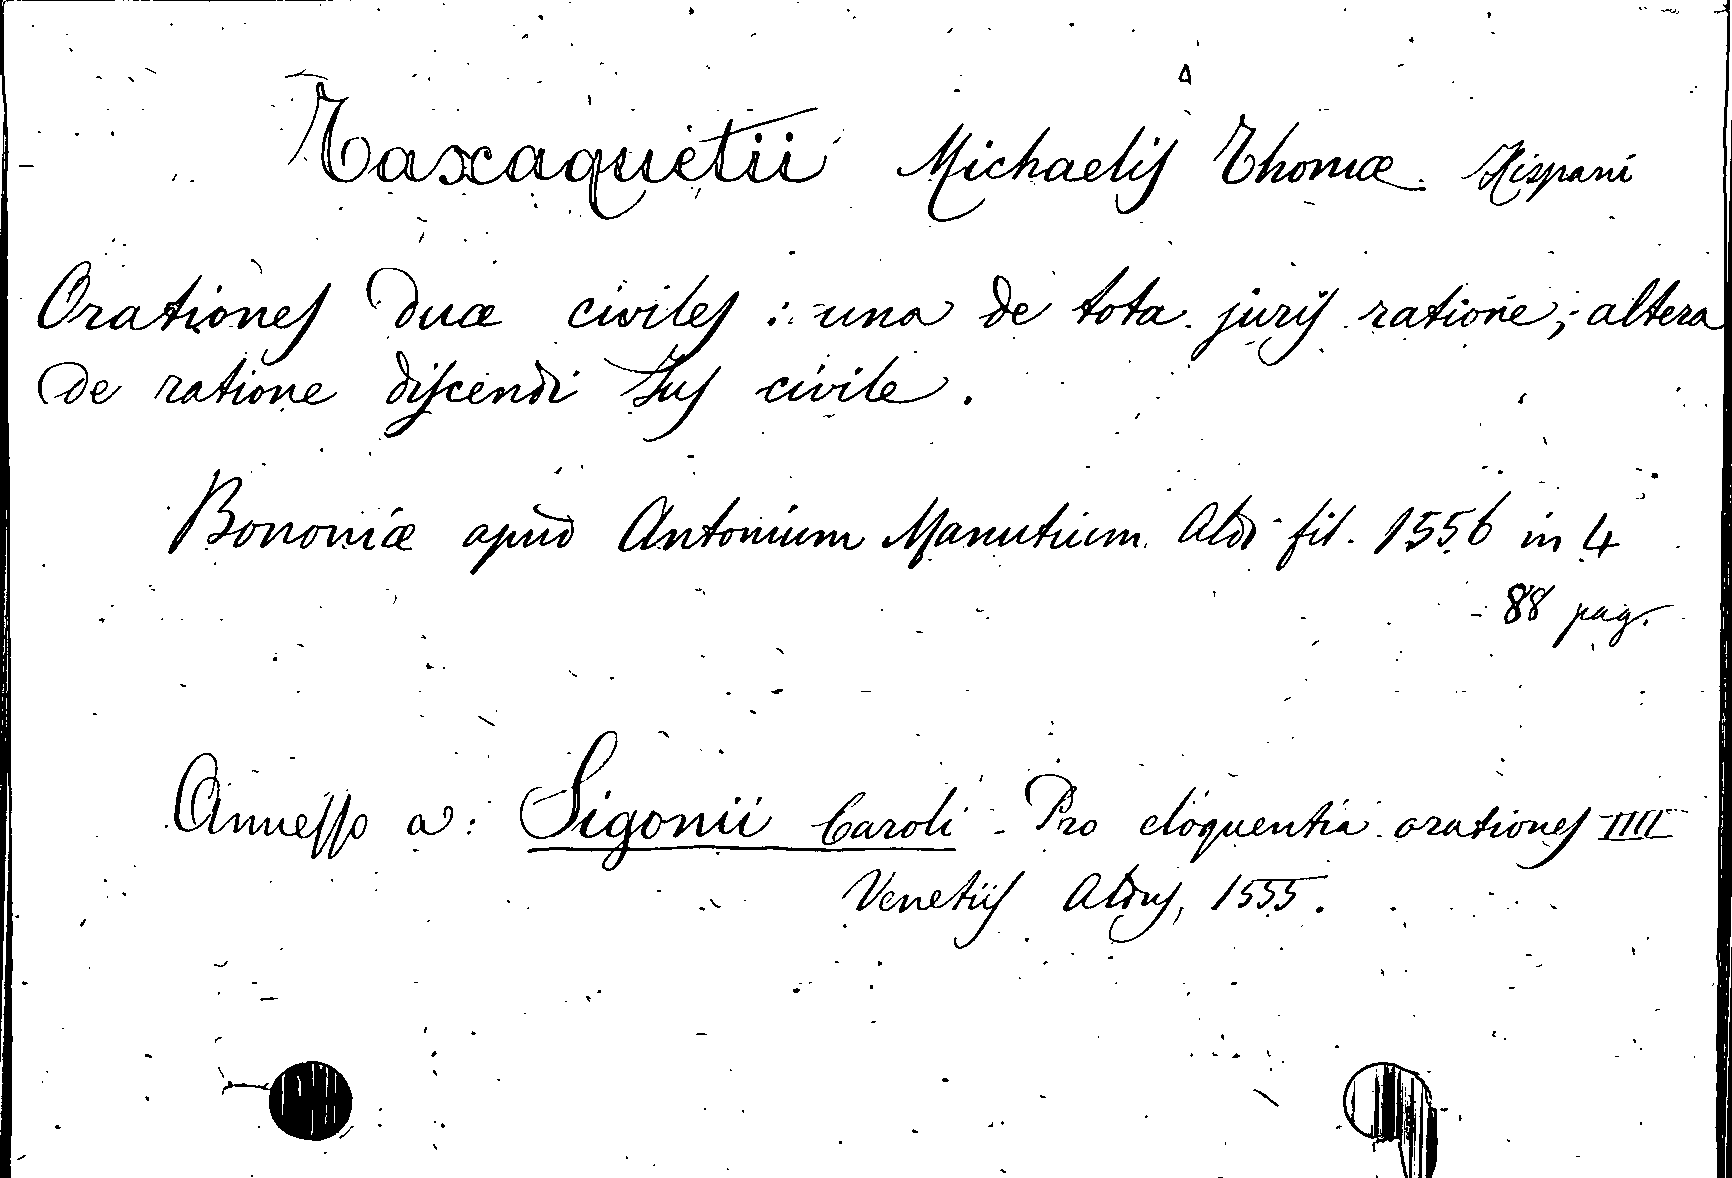 Taxaquetii Michaelis Thomæ Hispani
Orationes duæ civiles : una de tota juris ratione; altera
de ratione discendi Jus civile.
Bononiæ apud Antonium Manutium Aldi fil. 1556 in 4
88 pag.
Annesso a: Sigonii Caroli - Pro eloquentia orationes IIII
Venetiis Aldus, 1555.